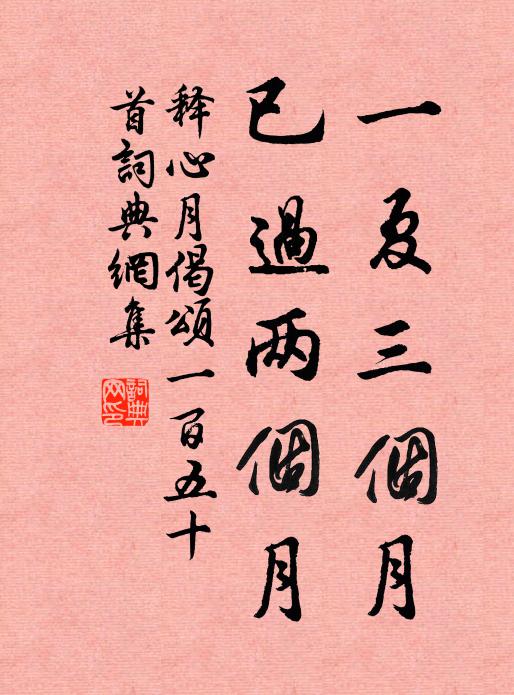 一夏三個月
已過两個月
释心月偈頌一百五十
首詞典網集
詞典
网印